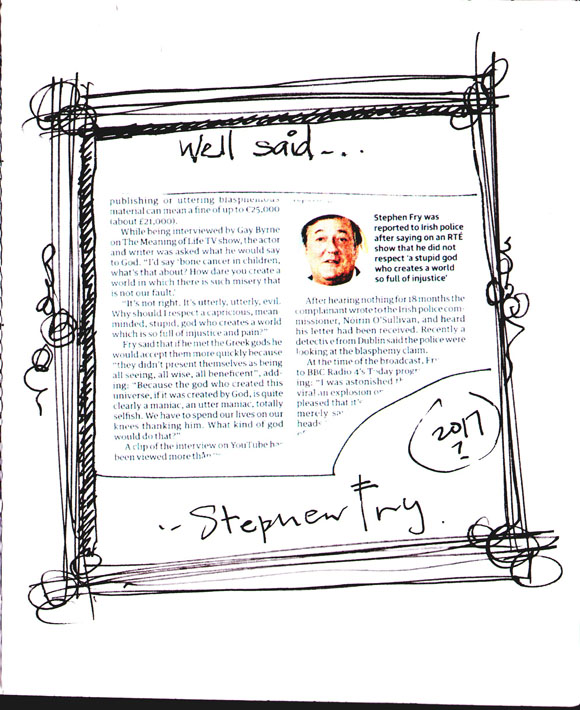 Well said-..
publishing or uttering blasphemous
material can mean a fine of up to €25,000
(about £21,000).
While being interviewed by Gay Byrne
on The Meaning of Life TV show, the actor
and writer was asked what he would say
to God. "I'd say 'bone cancer in children,
what's that about? How dare you create a
world in which there is such misery that
is not our fault.'
"It's not right. It's utterly, utterly, evil.
Why should I respect a capricious, mean-
minded, stupid, god who creates a world
which is so full of injustice and pain?"
Fry said that if he met the Greek gods he
would accept them more quickly because
"they didn't present themselves as being
all seeing, all wise, all beneficent", add-
ing: "Because the god who created this
universe, if it was created by God, is quite
clearly a maniac, an utter maniac, totally
selfish. We have to spend our lives on our
knees thanking him. What kind of god
would do that?"
A clip of the interview on YouTube ha
been viewed more than
Stephen Fry was
reported to Irish police
after saying on an RTÉ
show that he did not
respect 'a stupid god
who creates a world
so full of injustice'
After hearing nothing for 18 months the
complainant wrote to the Irish police com-
missioner, Nóirín O'Sullivan, and heard
his letter had been received. Recently a
detective from Dublin said the police were
looking at the blasphemy claim.
At the time of the broadcast, Fr
to BBC Radio 4's T day progr
ing: "I was astonished th
viral an explosion or
pleased that it's
merely sa
heads
of
2017
?
-- Stephen Fry.